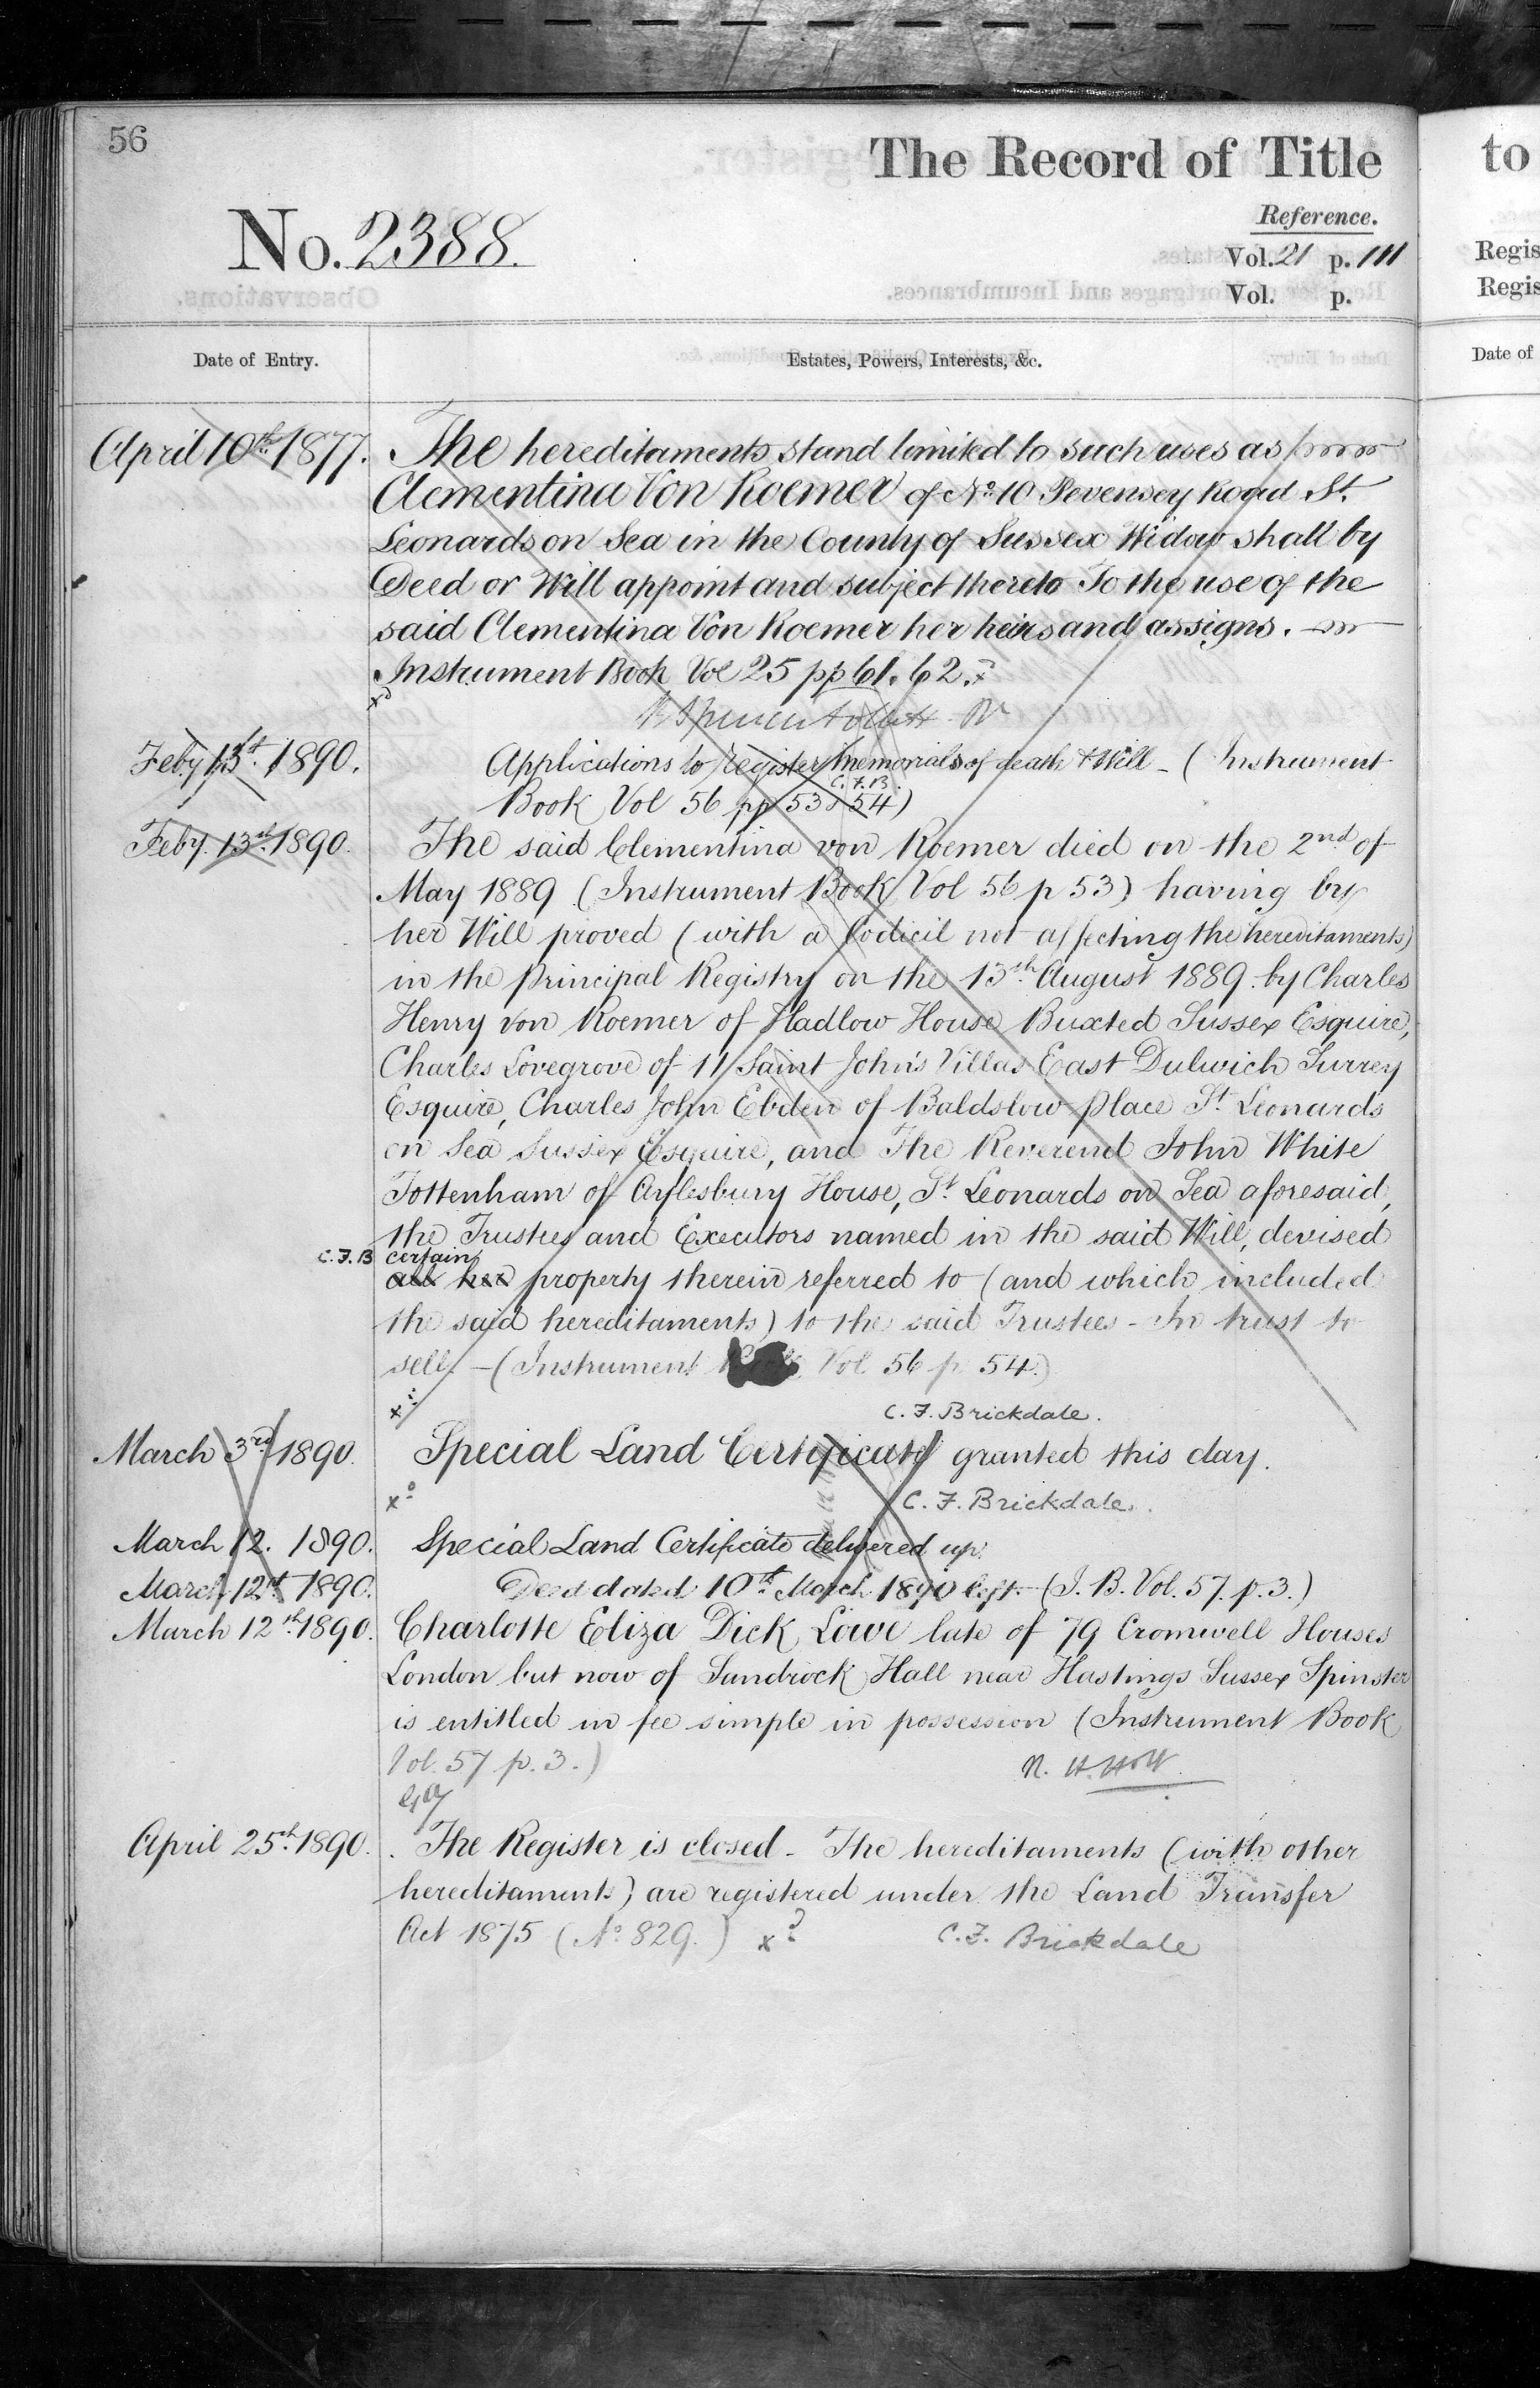 56
The Record of Title
to
Reference.
No. 2388.
Vol. 21 p. 111
Regis
Vol. p.
Regis
Date of Entry.
Estates, Powers, Interests, &c.
Date of
April 10th 1877. The hereditaments stand limited to such uses as
Clementina Von Roemer of No. 10 Pevensey Road St.
Leonards on Sea in the County of Sussex Widow shall by
Deed or Will appoint and subject thereto To the use of the
said Clementina Von Roemer her heirs and assigns.
Instrument Book Vol 25 pp 61. 62.
Feby 13th. 1890. Applications to register memorials of death & Will - (Instrument
C.F.B.
Book Vol 56 pp 53 & 54)
Feby. 13th. 1890. The said Clementina von Roemer died on the 2nd of
May 1889 (Instrument Book Vol 56 p 53) having by
her Will proved (with a Codicil not affecting the hereditaments)
in the Principal Registry on the 13th. August 1889. by Charles
Henry von Roemer of Hadlow House Buxted Sussex Esquire,
Charles Lovegrove of 11 Saint John's Villas East Dulwich Surrey
Esquire, Charles John Ebden of Baldslow Place St. Leonards
on Sea Sussex Esquire, and The Reverend John White
Tottenham of Aylesbury House, St. Leonards on Sea aforesaid,
the Trustees and Executors named in the said Will, devised
C.F.B certain
all her property therein referred to (and which included
the said hereditaments) to the said Trustees - In trust to
sell. - (Instrument Vol. 56 p. 54.)
C. F. Brickdale.
March 3rd 1890. Special Land Certificate granted this day.
C. F. Brickdale.
March 12. 1890. Special Land Certificate delivered up.
March 12th 1890. Deed dated 10th. March 1890 left. (I. B. Vol. 57. p. 3.)
March 12th. 1890. Charlotte Eliza Dick Lowe late of 79 Cromwell Houses
London but now of Sandrock Hall near Hastings Sussex Spinster
is entitled in fee simple in possession (Instrument Book
Vol. 57 p. 3.) N. H. Holt.
April 25th. 1890. The Register is closed - The hereditaments (with other
hereditaments) are registered under the Land Transfer
Act 1875 (No. 829.) C. F. Brickdale